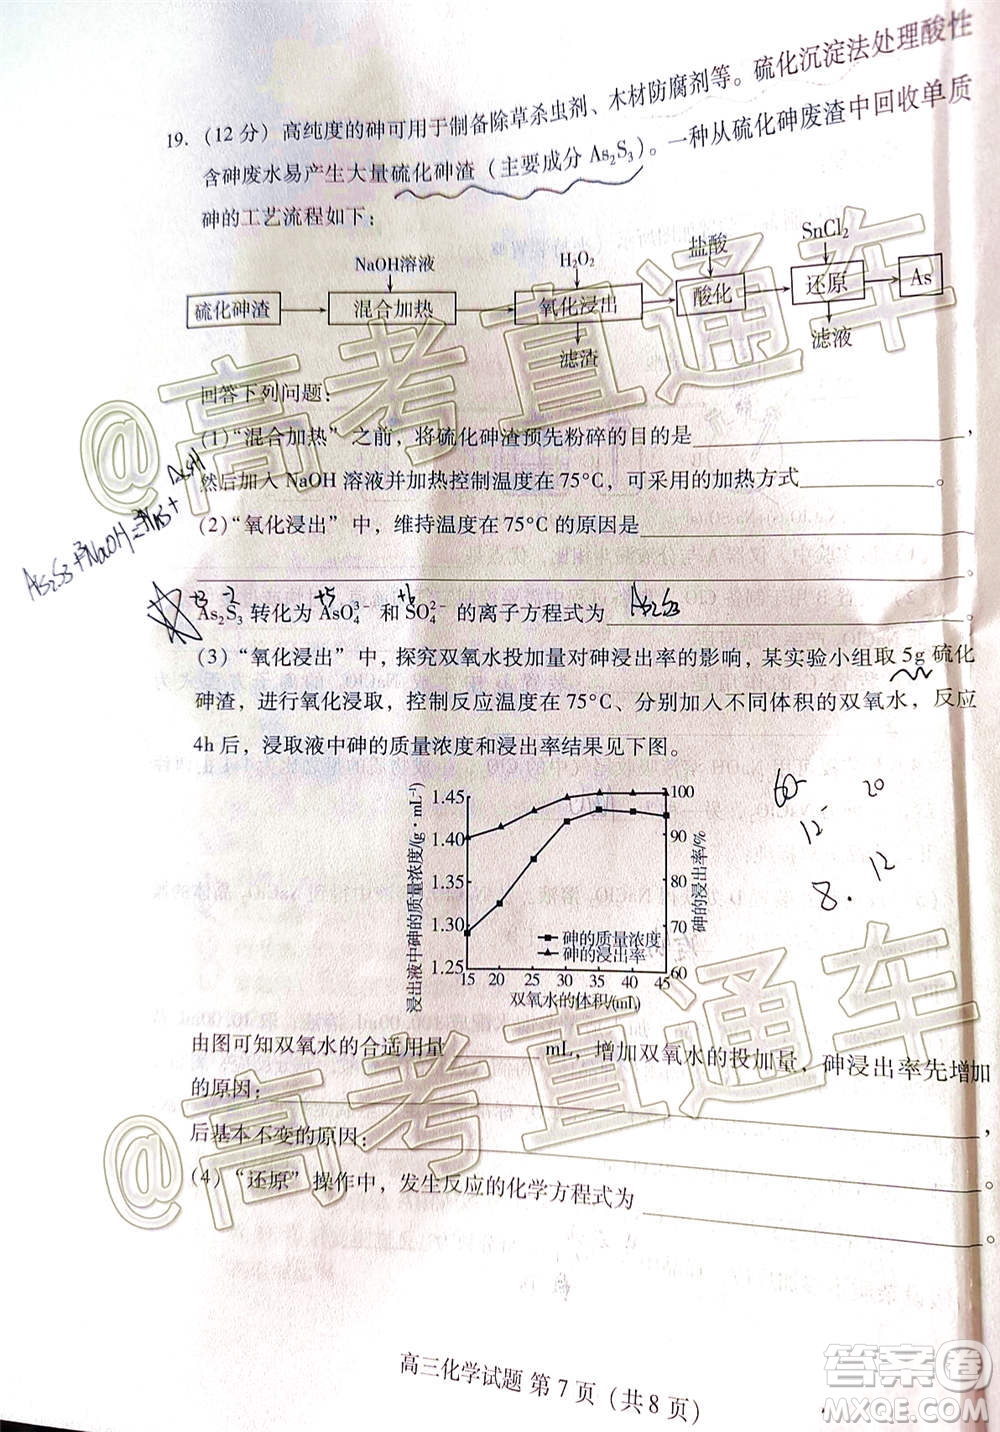 19. (12 分) 高纯度的砷可用于制备除草杀虫剂、木材防腐剂等。硫化沉淀法处理酸性
含砷废水易产生大量硫化砷渣 (主要成分 As₂S₃)。一种从硫化砷废渣中回收单质
砷的工艺流程如下:
NaOH溶液 H₂O₂ 盐酸 SnCl₂
硫化砷渣 混合加热 氧化浸出 酸化 还原 As
滤渣 滤液
回答下列问题:
(1) “混合加热” 之前, 将硫化砷渣预先粉碎的目的是 ,
然后加入 NaOH 溶液并加热控制温度在 75°C, 可采用的加热方式 。
(2) “氧化浸出” 中, 维持温度在 75°C 的原因是
。
As₂S₃ 转化为 AsO₄³⁻ 和 SO₄²⁻ 的离子方程式为 As₂S₃ 。
+3 -2 +5 +6
(3) “氧化浸出” 中, 探究双氧水投加量对砷浸出率的影响, 某实验小组取 5g 硫化
砷渣, 进行氧化浸取, 控制反应温度在 75°C、分别加入不同体积的双氧水, 反应
4h 后, 浸取液中砷的质量浓度和浸出率结果见下图。
60 20
12
8. 12
浸出液中砷的质量浓度/(g·mL⁻¹)
1.45
1.40
1.35
1.30
1.25
100
90
80
70
60
砷的浸出率/%
砷的质量浓度
砷的浸出率
15 20 25 30 35 40 45
双氧水的体积/(mL)
由图可知双氧水的合适用量 mL, 增加双氧水的投加量, 砷浸出率先增加
的原因: ,
后基本不变的原因: 。
(4) “还原” 操作中, 发生反应的化学方程式为
。
高三化学试题 第 7 页 (共 8 页)
@高考直通车
@高考直通车
答案卷
MXQE.COM